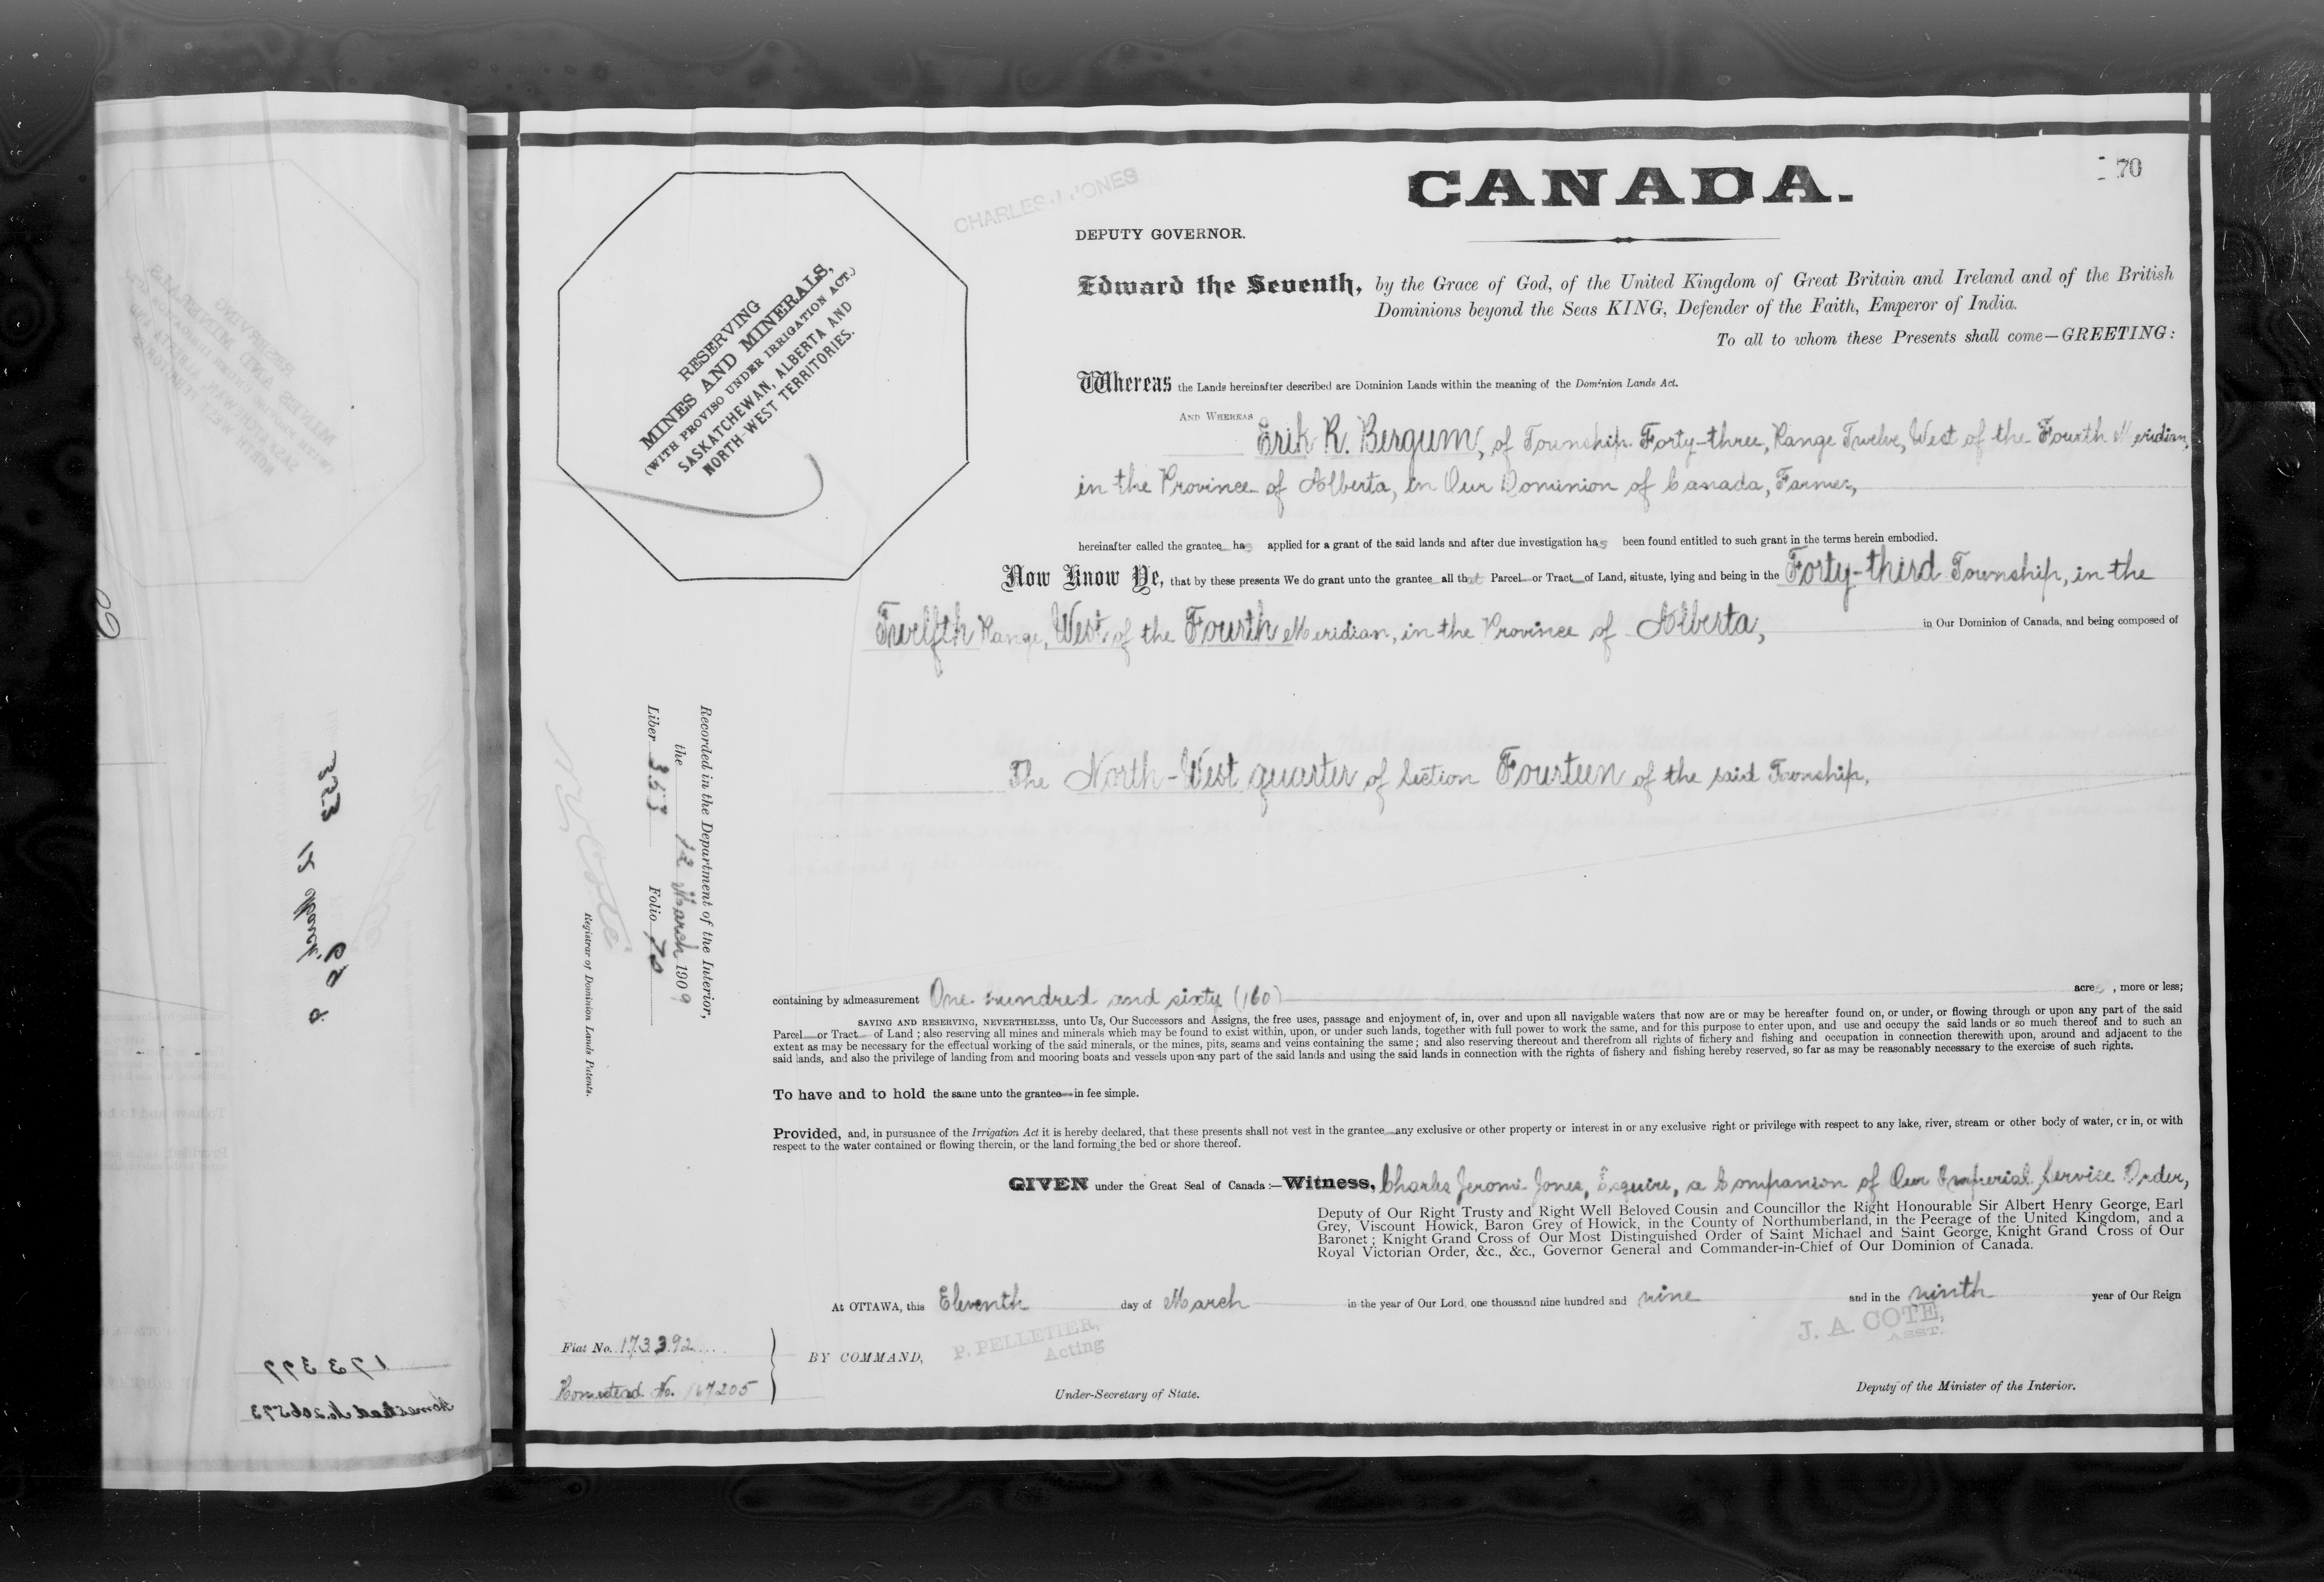 70
CANADA.
CHARLES J. JONES
DEPUTY GOVERNOR.
RESERVING
MINES AND MINERALS,
(WITH PROVISO UNDER IRRIGATION ACT.)
SASKATCHEWAN, ALBERTA AND
NORTH-WEST TERRITORIES.
Edward the Seventh, by the Grace of God, of the United Kingdom of Great Britain and Ireland and of the British
Dominions beyond the Seas KING, Defender of the Faith, Emperor of India.
To all to whom these Presents shall come—GREETING:
Whereas the Lands hereinafter described are Dominion Lands within the meaning of the Dominion Lands Act.
AND WHEREAS Erik R. Bergum, of Township Forty-three, Range Twelve, West of the Fourth Meridian,
in the Province of Alberta, in Our Dominion of Canada, Farmer,
hereinafter called the grantee has applied for a grant of the said lands and after due investigation has been found entitled to such grant in the terms herein embodied.
Now Know Ye, that by these presents We do grant unto the grantee all that Parcel or Tract of Land, situate, lying and being in the Forty-third Township, in the
Twelfth Range, West of the Fourth Meridian, in the Province of Alberta, in Our Dominion of Canada, and being composed of
The North-West quarter of Section Fourteen of the said Township,
Recorded in the Department of the Interior,
the 12 March 1909
Liber 353 Folio 70
N. O. Coté
Registrar of Dominion Lands Patents.
containing by admeasurement One hundred and sixty (160) acres, more or less;
SAVING AND RESERVING, NEVERTHELESS, unto Us, Our Successors and Assigns, the free uses, passage and enjoyment of, in, over and upon all navigable waters that now are or may be hereafter found on, or under, or flowing through or upon any part of the said
Parcel or Tract of Land; also reserving all mines and minerals which may be found to exist within, upon, or under such lands, together with full power to work the same, and for this purpose to enter upon, and use and occupy the said lands or so much thereof and to such an
extent as may be necessary for the effectual working of the said minerals, or the mines, pits, seams and veins containing the same; and also reserving thereout and therefrom all rights of fichery and fishing and occupation in connection therewith upon, around and adjacent to the
said lands, and also the privilege of landing from and mooring boats and vessels upon any part of the said lands and using the said lands in connection with the rights of fishery and fishing hereby reserved, so far as may be reasonably necessary to the exercise of such rights.
To have and to hold the same unto the grantee in fee simple.
Provided, and, in pursuance of the Irrigation Act it is hereby declared, that these presents shall not vest in the grantee any exclusive or other property or interest in or any exclusive right or privilege with respect to any lake, river, stream or other body of water, or in, or with
respect to the water contained or flowing therein, or the land forming the bed or shore thereof.
GIVEN under the Great Seal of Canada:—Witness, Charles Jerome Jones, Esquire, a Companion of Our Imperial Service Order,
Deputy of Our Right Trusty and Right Well Beloved Cousin and Councillor the Right Honourable Sir Albert Henry George, Earl
Grey, Viscount Howick, Baron Grey of Howick, in the County of Northumberland, in the Peerage of the United Kingdom, and a
Baronet; Knight Grand Cross of Our Most Distinguished Order of Saint Michael and Saint George, Knight Grand Cross of Our
Royal Victorian Order, &c., &c., Governor General and Commander-in-Chief of Our Dominion of Canada.
At OTTAWA, this Eleventh day of March in the year of Our Lord, one thousand nine hundred and nine and in the ninth year of Our Reign
Fiat No. 173392
Homestead No. 167205
BY COMMAND,
P. PELLETIER,
Acting
Under-Secretary of State.
J. A. COTE,
ASST.
Deputy of the Minister of the Interior.
353 12 March 9
69
173399
Homestead No. 206573